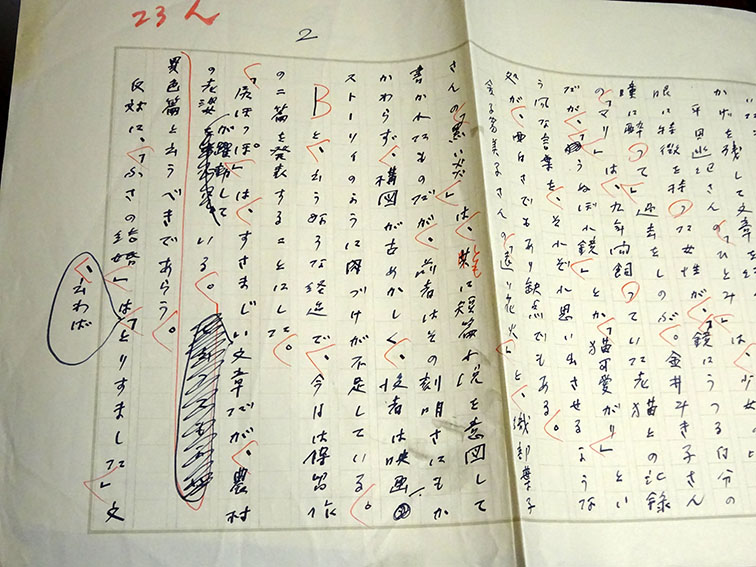 かげを残して
さんの「ひとみ」は 少女の
眼に特徴を持った女性が、鏡にうつる自分の
瞳に酔って 過去をしのぶ。金井みき子さん
の「マリ」は、九年間飼っていた老猫との記録
だが、「うぬぼれ鏡」とか「猫可愛がり」とい
う風な言葉を、それぞれ思い出させるような
処が、面白さでもあり欠点でもある。
富美子さんの「遠い花火」と、織部葉子
さんの「黒い炎」は、共に短篇小説を意図して
書かれたものだが、前者はその刻明さにもか
かわらず、構図が古めかしく、後者は映画の
ストーリイのように肉づけが不足している。
Bと、云うような経過で、今月は保留作
の二篇を発表することにした。
は、すさまじい文章だが、農村
の老婆が躍動している。
異色篇と云うべきであらう。
反対に、「ふさの結婚」は、とりすました」文
、云わば
2
23人